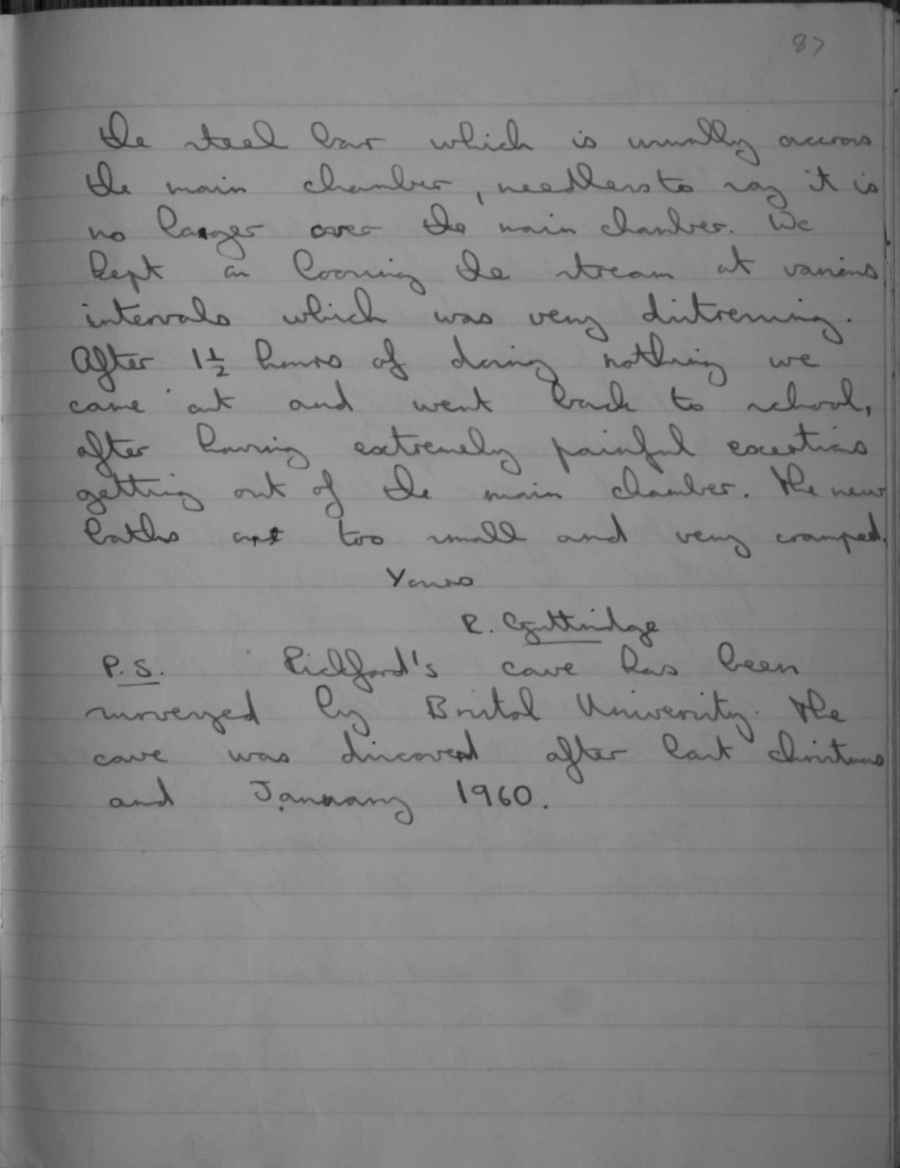 87
the steel bar which is usually accross
the main chamber, needless to say it is
no longer over the main chamber. We
kept on loosing the stream at various
intervals which was very distressing.
After 1½ hours of doing nothing we
came out and went back to school,
after having extremely painful exertions
getting out of the main chamber. The new
baths are too small and very cramped.
Yours
R.
P.S. Pickford's cave has been
surveyed by Bristol University. The
cave was discoverd after last christmas
and January 1960.